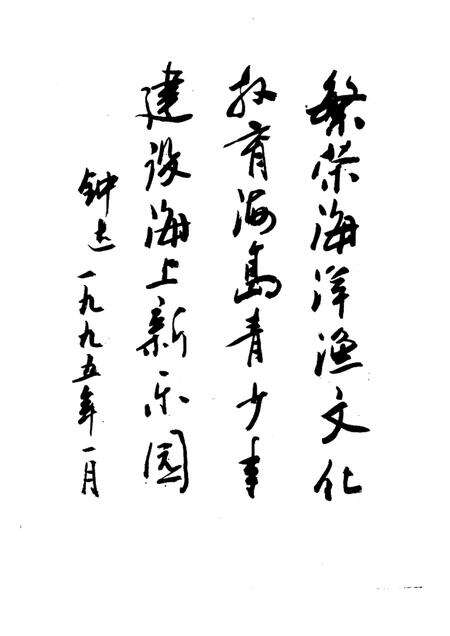 繁荣海洋渔文化
教育海岛青少年
建设海上新乐园
钟达一九九五年一月